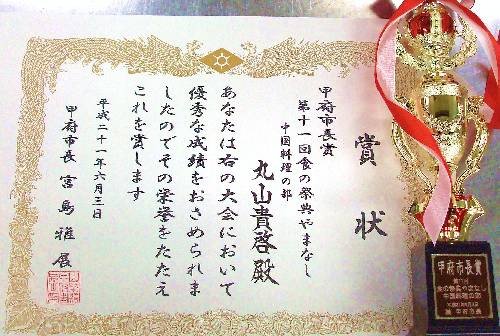 賞状
甲府市長賞
第十一回食の祭典やまなし
中国料理の部
丸山貴啓殿
あなたは右の大会において
優秀な成績をおさめられま
したのでその栄誉をたたえ
これを賞します
平成二十一年六月三日
甲府市長 宮島雅展
甲府市長賞
食の祭典やまなし
中国料理の部